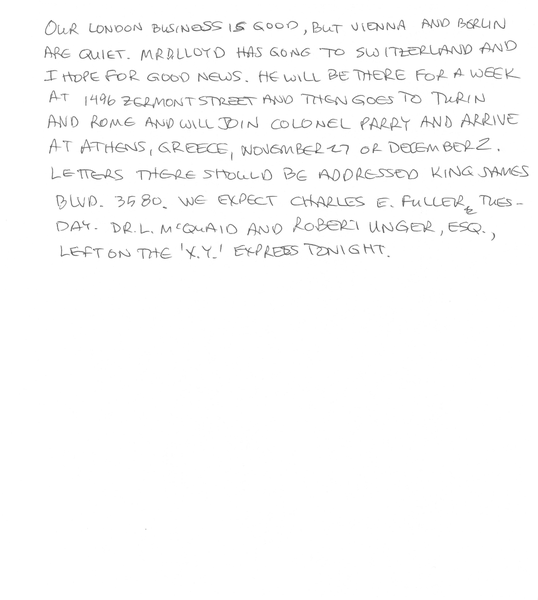 OUR LONDON BUSINESS IS GOOD, BUT VIENNA AND BERLIN
ARE QUIET. MR.D.LLOYD HAS GONE TO SWITZERLAND AND
I HOPE FOR GOOD NEWS. HE WILL BE THERE FOR A WEEK
AT 1496 ZERMONT STREET AND THEN GOES TO TURIN
AND ROME AND WILL JOIN COLONEL PARRY AND ARRIVE
AT ATHENS, GREECE, NOVEMBER 27 OR DECEMBER 2.
LETTERS THERE SHOULD BE ADDRESSED KING JAMES
BLVD. 3580. WE EXPECT CHARLES E. FULLER, TUES-
DAY. DR. L. MCQUAID AND ROBERT UNGER, ESQ.,
LEFT ON THE 'X.Y.' EXPRESS TONIGHT.